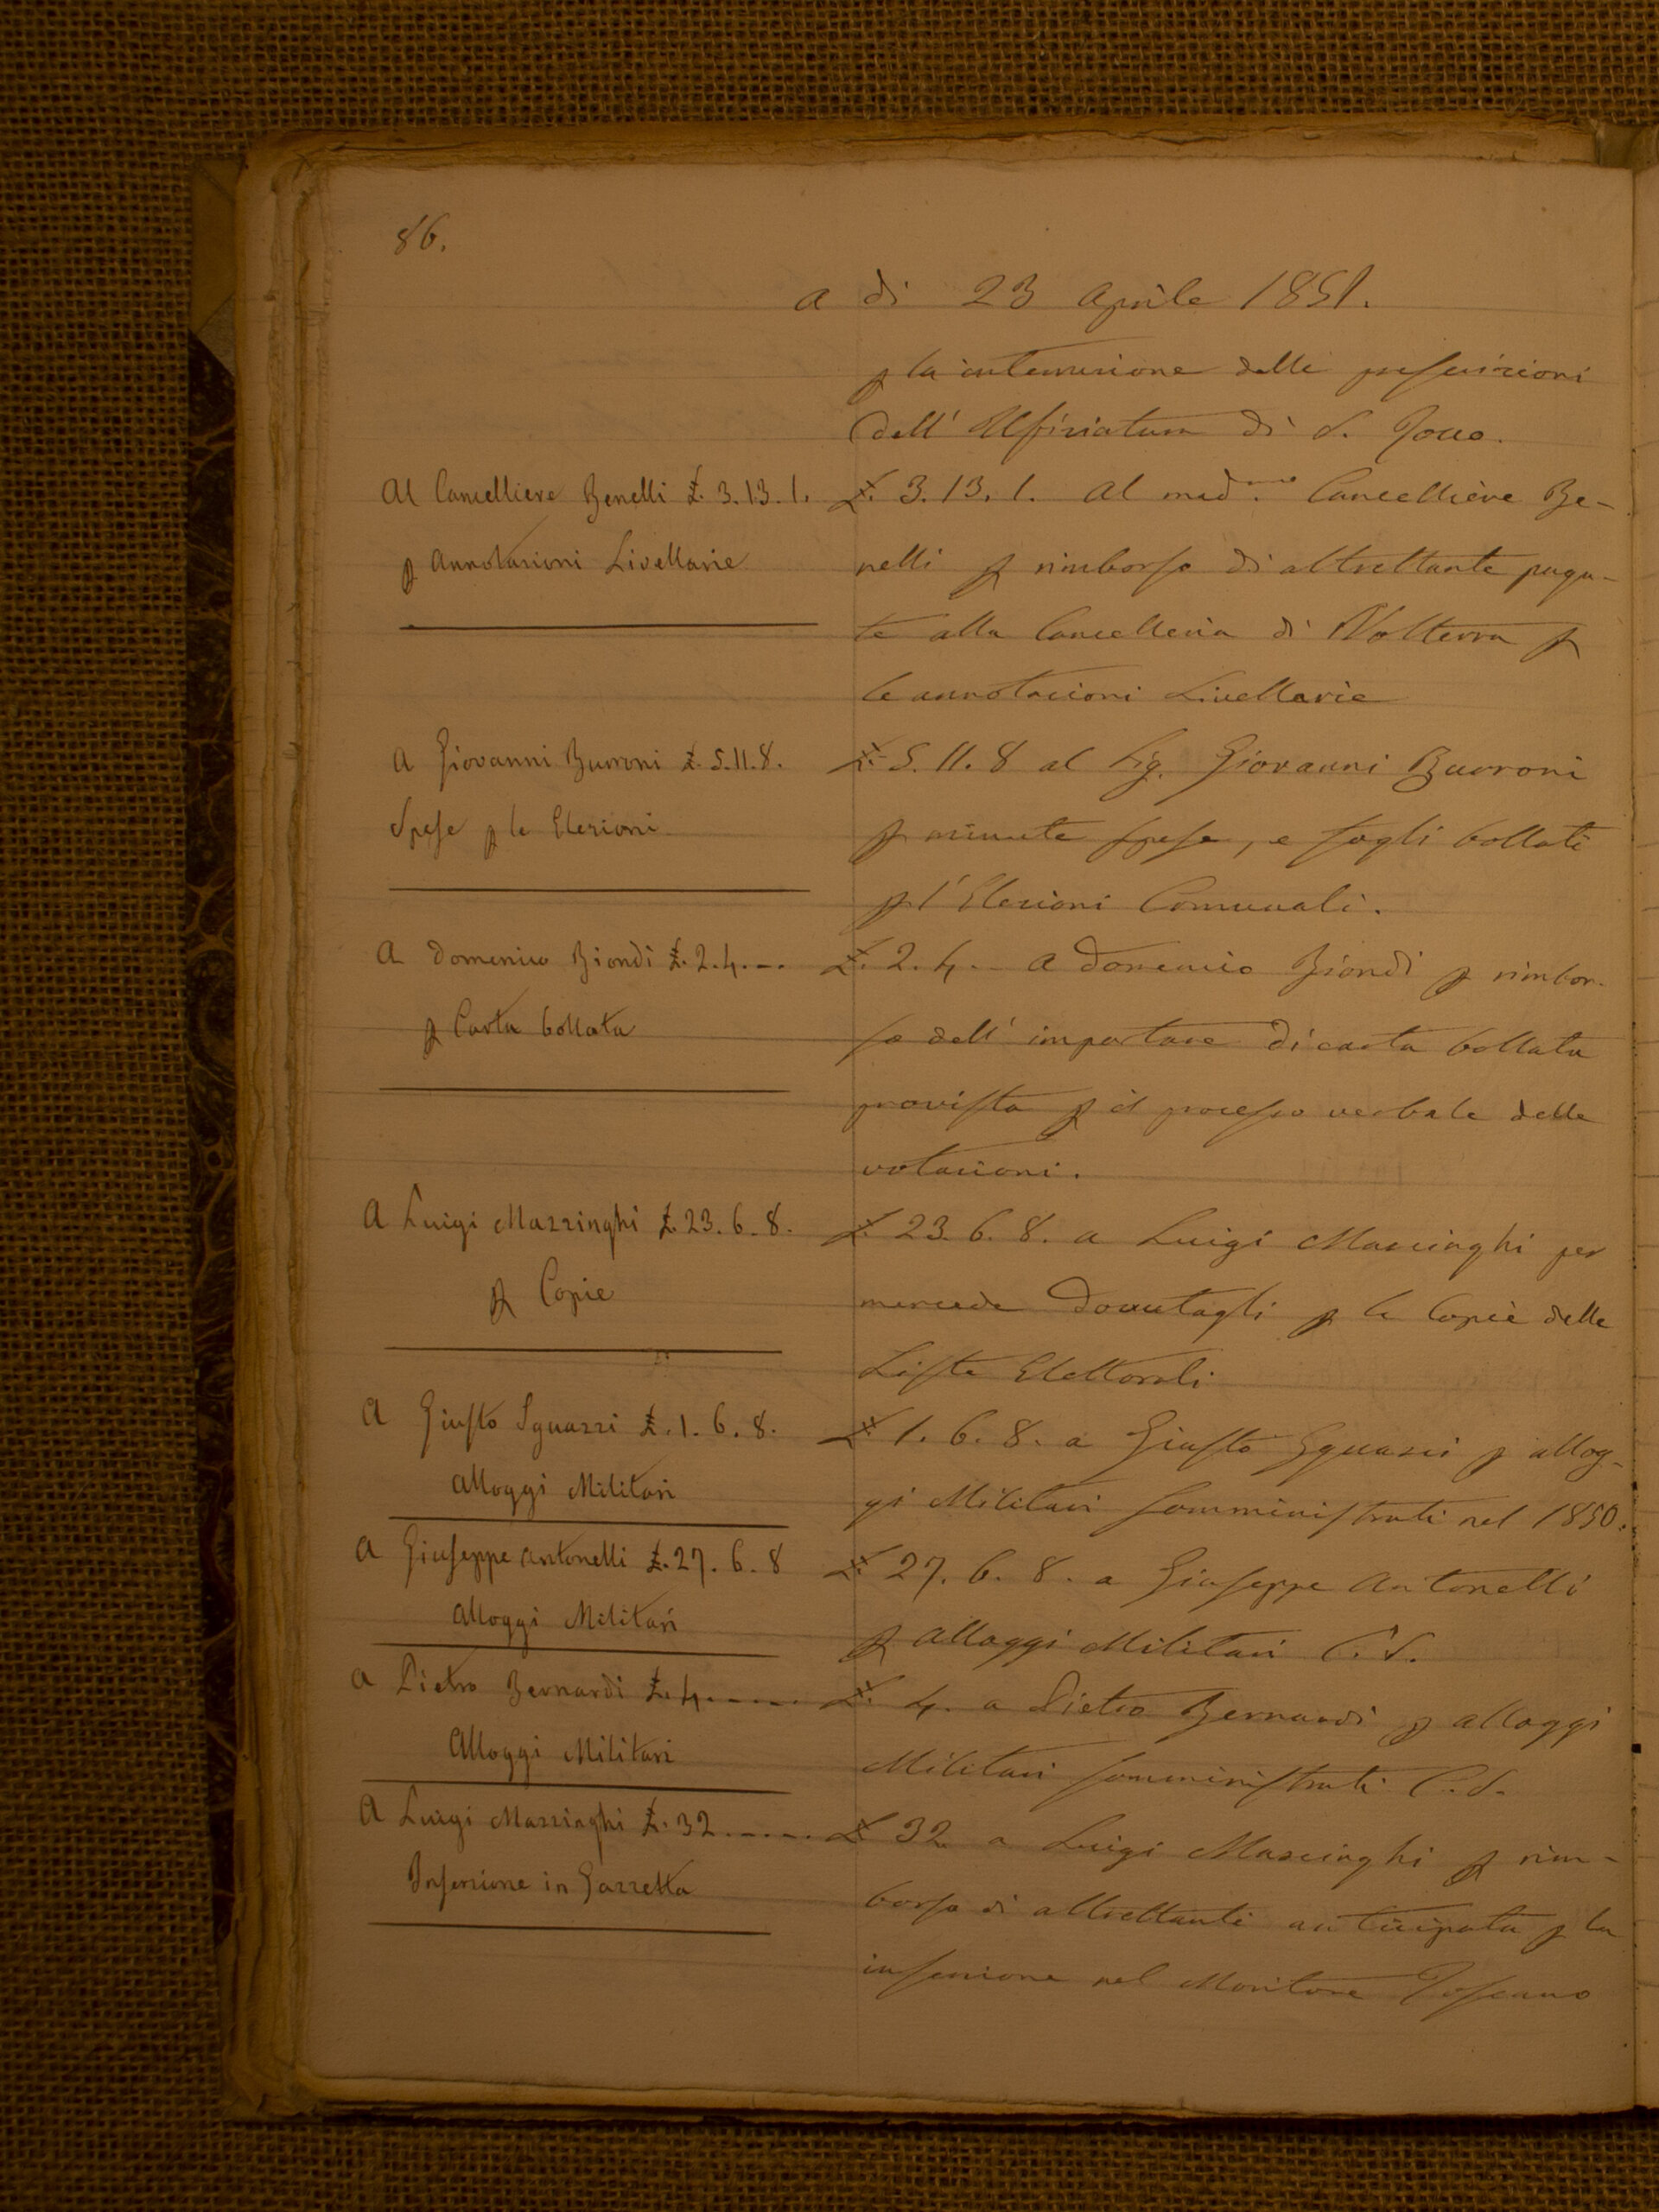 86.
a di 23 Aprile 1851.
p la interruzione delle prescrizioni
dell' di S.
Al Cancelliere Benelli £. 3.13.1.
p Annotazioni Livellarie
£. 3.13.1. Al med.mo Cancelliere Be-
nelli p rimborso di altrettante paga-
te alla Cancelleria di Volterra p
le annotazioni Livellarie
A Giovanni Burroni £. 5.11.8.
Spese p le Elezioni
£. 5.11.8 al Sig. Giovanni Burroni
p minute spese, e fogli bollati
p l'Elezioni Comunali.
A Domenico Biondi £. 2.4.--
p Carta bollata
£. 2.4.- a Domenico Biondi p rimbor-
so dell' importare di carta bollata
provista p il processo verbale delle
votazioni.
A Luigi Mazzinghi £ 23.6.8.
p Copie
£. 23.6.8. a Luigi Mazzinghi per
mercede dovutagli p le Copie delle
Liste Elettorali
A Giusto Sguazzi £.1.6.8.
Alloggi Militari
£ 1.6.8. a Giusto Sguazzi p allog-
gi Militari somministrati nel 1850.
A Giuseppe Antonelli £.27.6.8
Alloggi Militari
£ 27.6.8. a Giuseppe Antonelli
p Alloggi Militari C.S.
A Pietro Bernardi £. 4.-----
Alloggi Militari
£. 4. a Pietro Bernardi p alloggi
Militari somministrati C.S.
A Luigi Mazzinghi £. 32.-----
Inserzione in Gazzetta
£ 32 a Luigi Mazzinghi p rim-
borso di altrettanti anticipata p la
inserzione nel Monitore Toscano